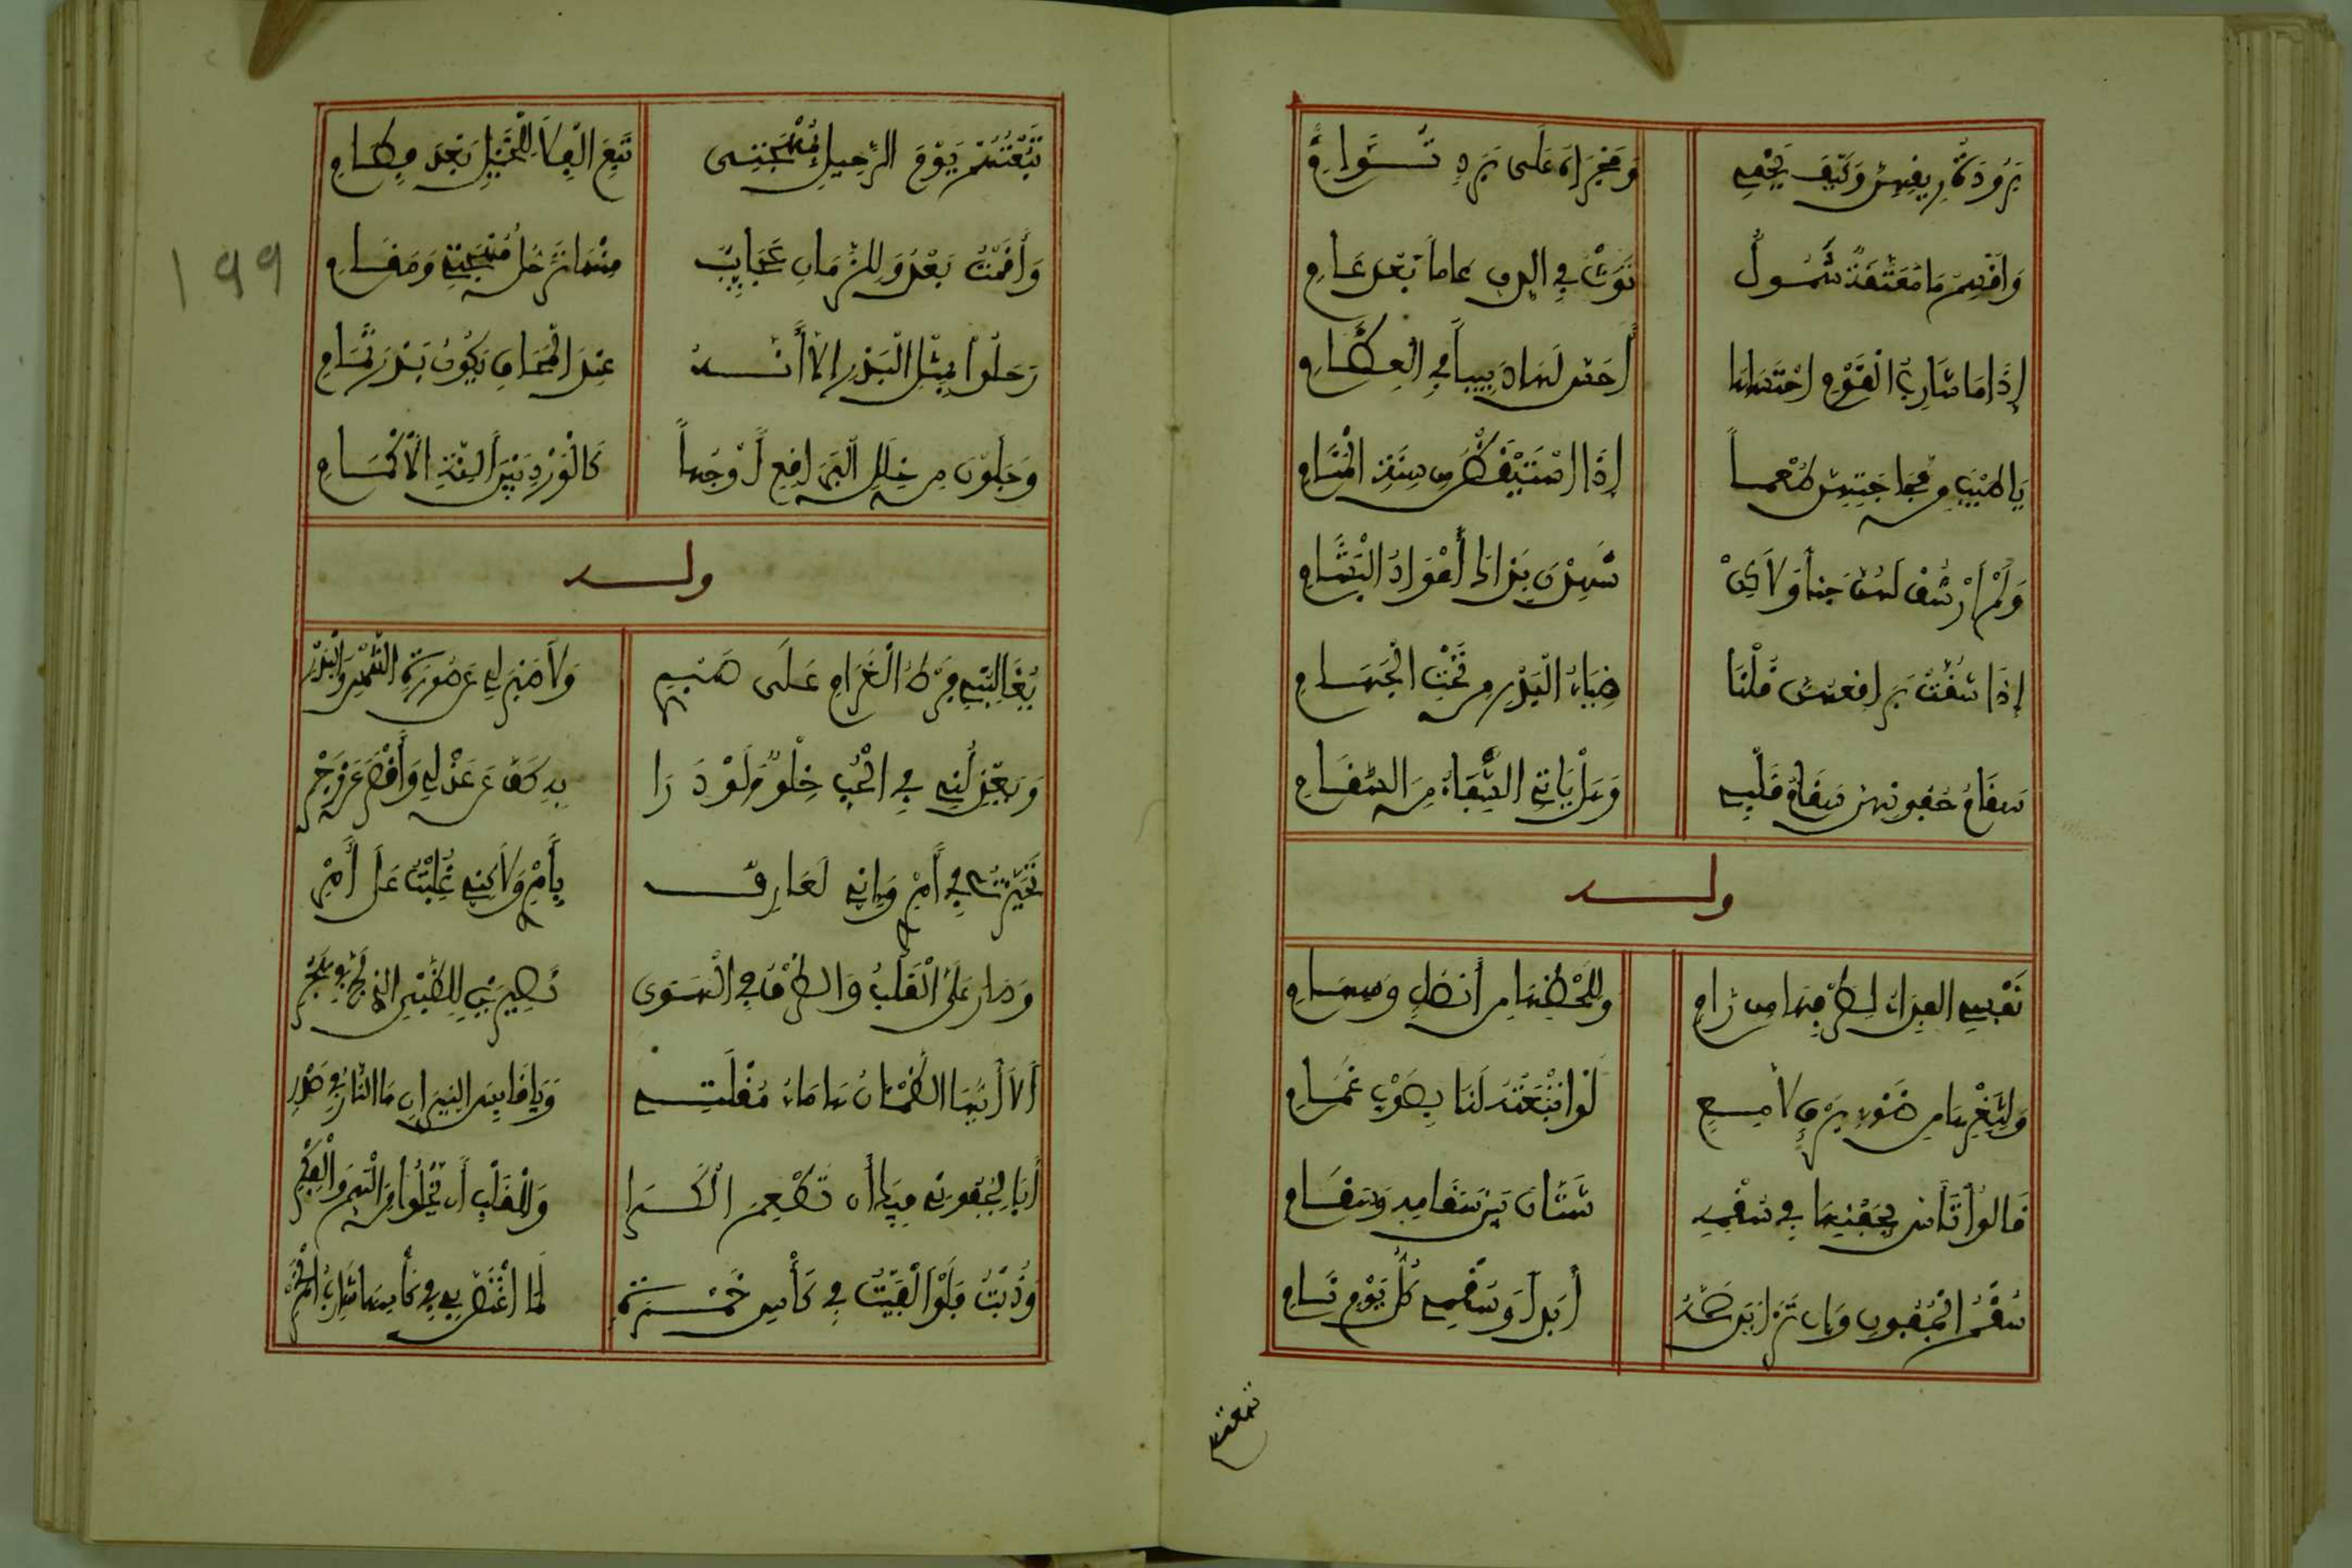 بروده ريقهن وكيف يخفى ومجراه على برد تؤام
وأقسم ما معتقة شمول ثوت في الدن عاماً بعد عام
إذا ما شارب القوم احتساها أحس لها دبيباً في العظام
بأطيب من مجاجتهن طعماً إذا استيقظن من سنة المنام
ولم أرشف لهن جنا ولاكن شهدن بذاك أعواد البشام
إذا شفت براقعهن قلنا ضياء البدر من تحت الجهام
سقام جفونهن سقام قلبي وهل يأتي الشفاء من السقام
وله
نفسي الفداء لطرفها من رام وللحظها من أنصل وسهام
ولثغرها من ضوء برق لامع لو انبعته لنا بصوب غمام
قالوا تأس بجفنها في سقمه شتان بين سقامه وسقام
سقم الجفون وان تزايد صحة أبداً وسقمي كل يوم نام
تبعتهم
تبعتهم يوم الرحيل مهجتي تبع الفلا للخيل بعد فطام
وأقمت بعد وللزمان عجايب منها ترحل مهجتي ومقام
رحلوا بمثل البدر إلا أنه عند المحاق يكون بدر تمام
وجلون من خلل البراقع أوجهاً كالورد بين أسنة الأكمام
وله
يغالبني فرط الغرام على صبري ولا صبر لي عن صورة الشمس والبدر
ويعذلني في الحب خلو ولو درا به كف عن عذلي وأقصر عن زجر
تحيرت في أمري وإني لعارف بأمري ولاكني غلبت على أمري
وصار علي القلب والطرف في الهوى نصيرين للظبي الذي لج في هجر
ألا أيها الظمئان ها ماء مقلتي ويا قابس النيران ها النار في صدر
أبا لجفوني فيك أن تطعم الكرا وللقلب أن تخلوا من الهم والفكر
وذبت فلو ألقيت في كأس خمرة لما اغتص بي في كأسها شارب الخمر